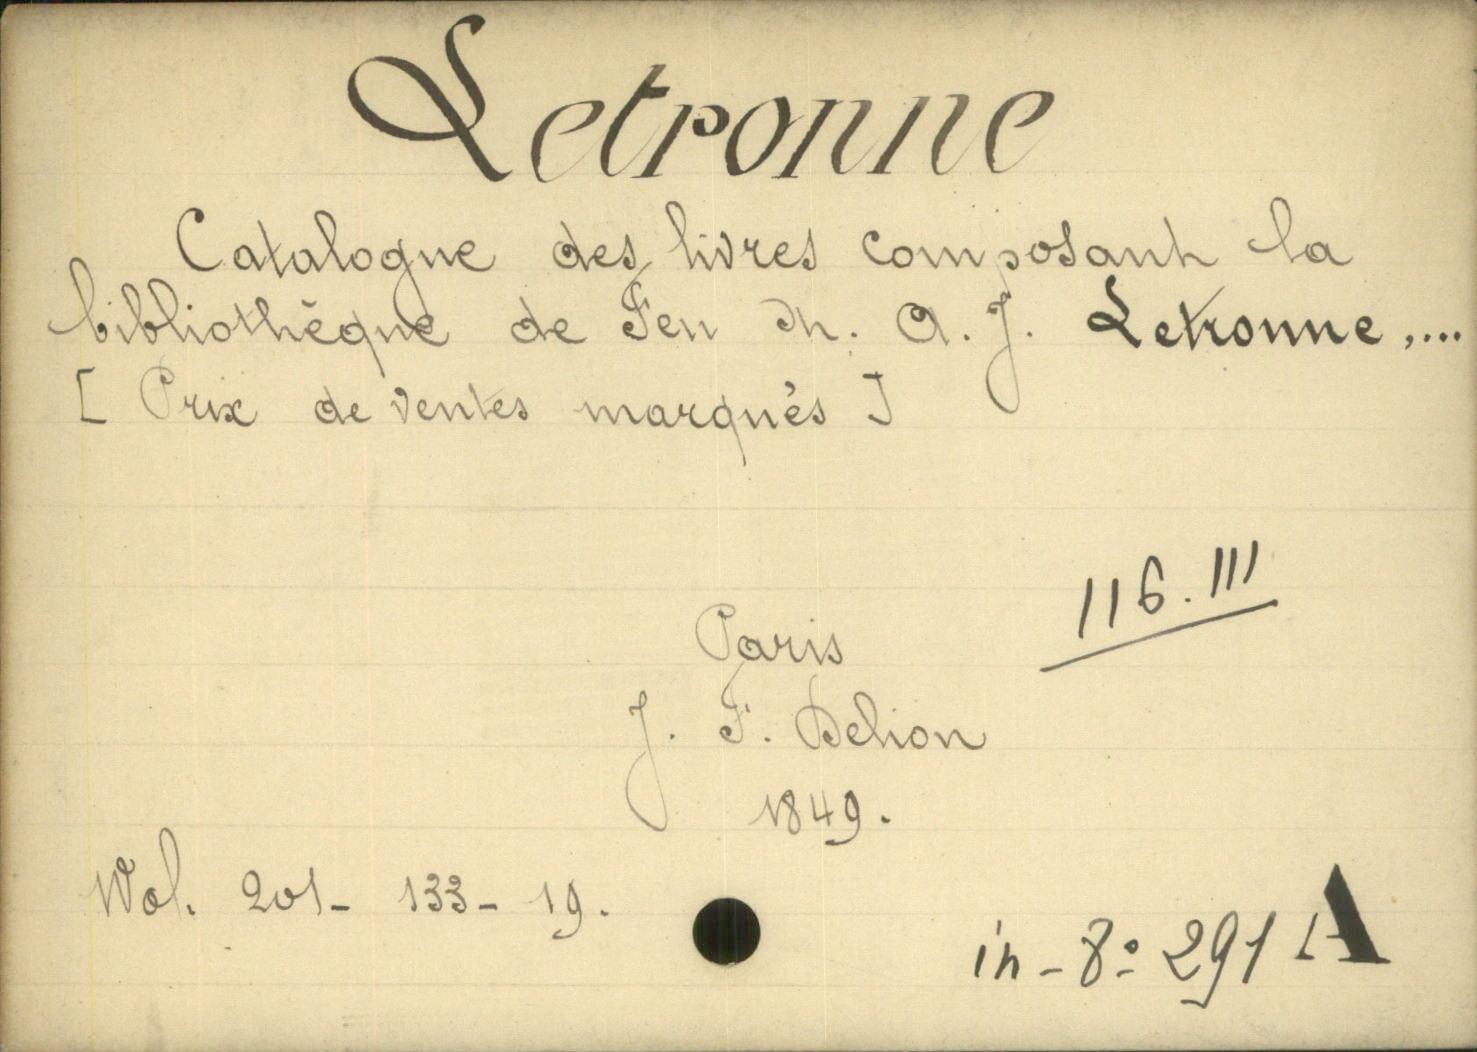 Letronne
Catalogue des livres composant la
bibliothèque de Feu M. A. J. Letronne,....
[ Prix de ventes marqués ]
116.III
Paris
J. F. Delion
1849.
Wol. 201- 133- 19.
in-8º 291 A